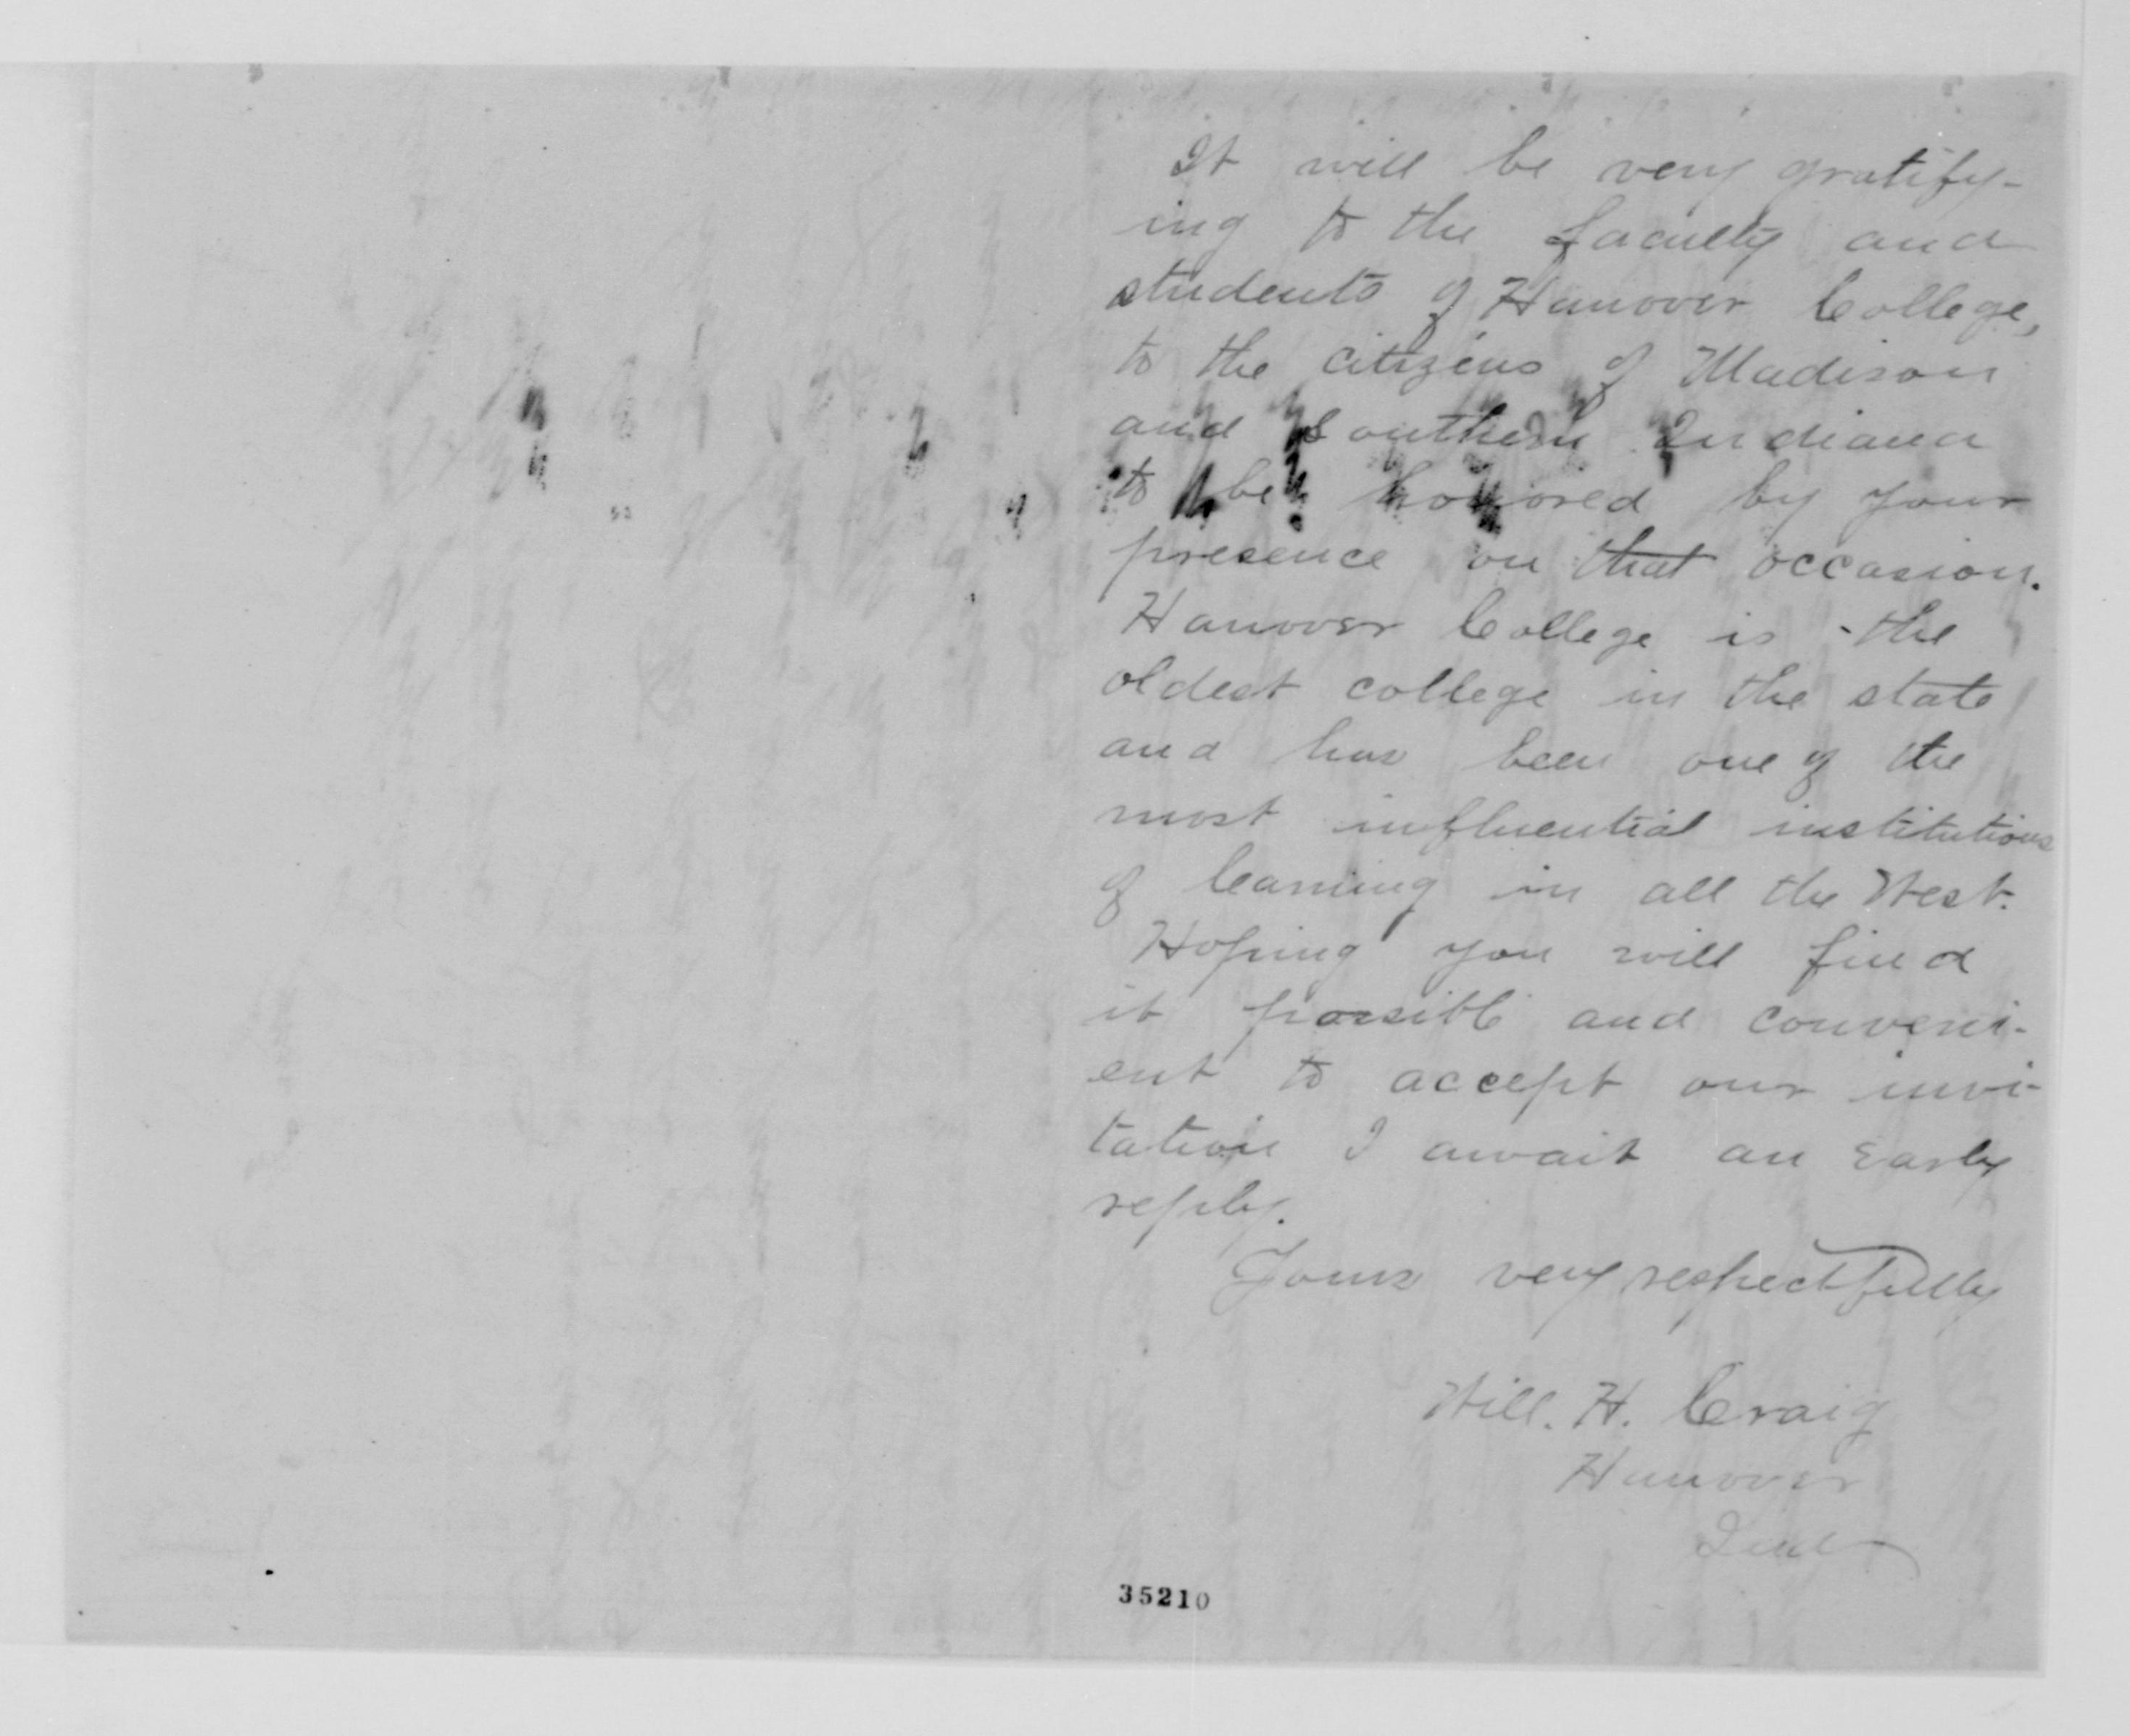 It will be very gratify-
ing to the faculty and
students of Hanover College,
to the citizens of Madison
and Southern Indiana
to be honored by your
presence on that occasion.
Hanover College is the
oldest college in the state
and has been one of the
most influential institutions
of learning in all the West.
Hoping you will find
it possible and conveni-
ent to accept our invi-
tation I await an early
reply.
Yours very respectfully
Will. H. Craig
Hanover
Ind
35210